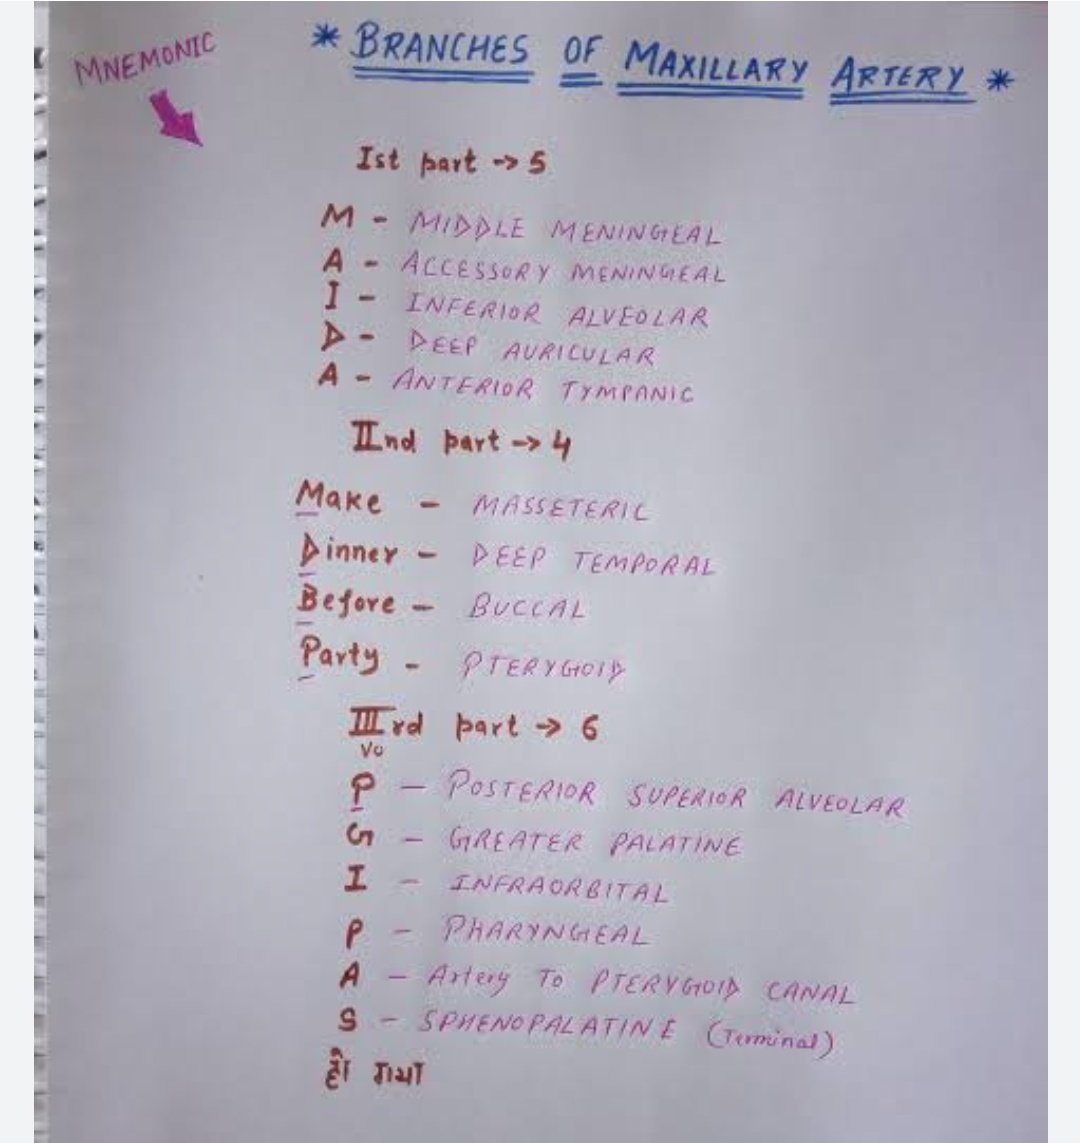 MNEMONIC
* BRANCHES OF MAXILLARY ARTERY *
Ist part -> 5
M - MIDDLE MENINGEAL
A - ACCESSORY MENINGEAL
I - INFERIOR ALVEOLAR
D - DEEP AURICULAR
A - ANTERIOR TYMPANIC
IInd part -> 4
Make - MASSETERIC
Dinner - DEEP TEMPORAL
Before - BUCCAL
Party - PTERYGOID
IIIrd part -> 6
vo
P - POSTERIOR SUPERIOR ALVEOLAR
G - GREATER PALATINE
I - INFRAORBITAL
P - PHARYNGEAL
A - Artery To PTERYGOID CANAL
S - SPHENOPALATINE (Terminal)
हो गया